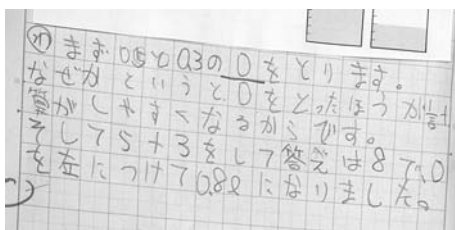 わ まず0.5と0.3の0をとります。
なぜかというと、0をとったほうが計
算がしやすくなるからです。
そして5+3をして答えは8で、0
を左につけて0.8ℓになりました。